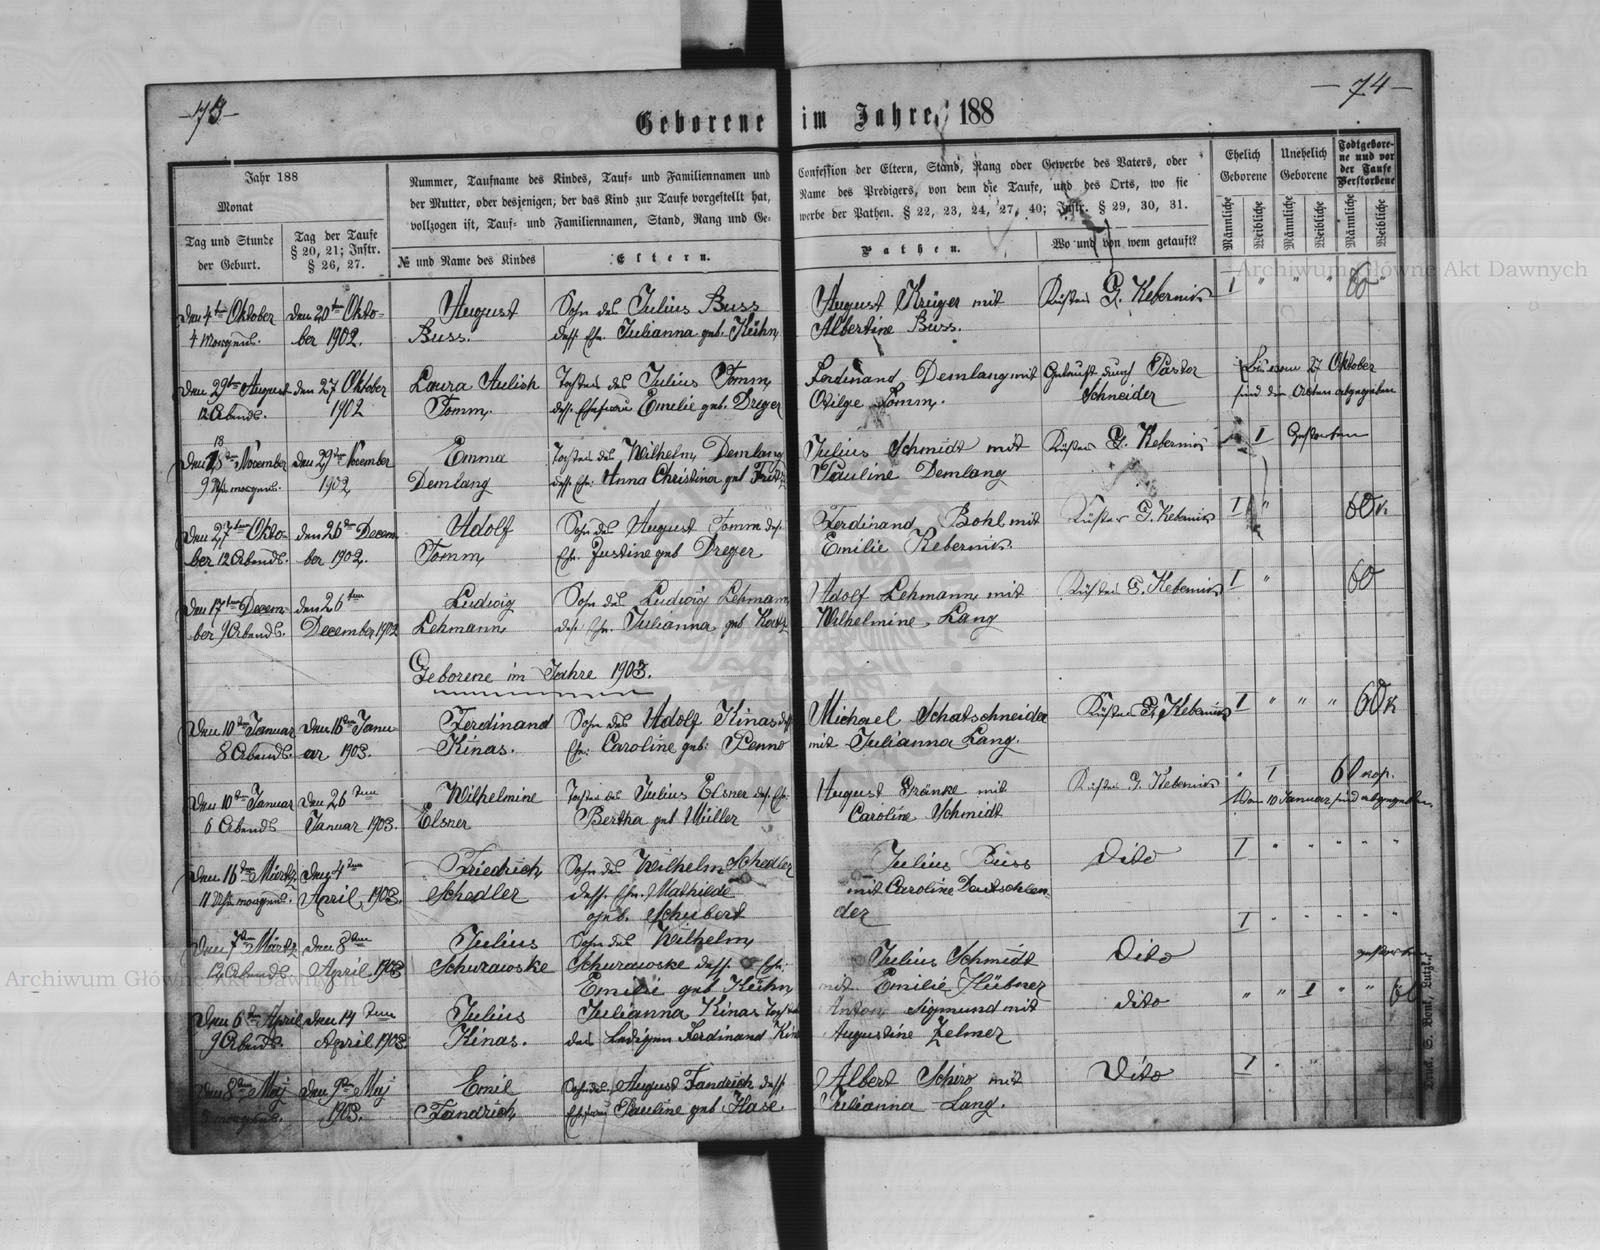 -73-
-74-
Geborene im Jahre 188
Jahr 188
Monat
Tag und Stunde
der Geburt.
Tag der Taufe
§ 20, 21; Instr.
§ 26, 27.
Nummer, Taufname des Kindes, Tauf- und Familiennamen und
der Mutter, oder desjenigen, der das Kind zur Taufe vorgestellt hat,
vollzogen ist, Tauf- und Familiennamen, Stand, Rang und Ge-
№ und Name des Kindes
Eltern.
Confession der Eltern, Stand, Rang oder Gewerbe des Vaters, oder
Name des Predigers, von dem die Taufe, und des Orts, wo sie
werbe der Pathen. § 22, 23, 24, 27, 40; Instr. § 29, 30, 31.
Pathen.
Wo und von wem getauft?
Ehelich
Geborene
Unehelich
Geborene
Todtgebore-
ne und vor
der Taufe
Verstorbene
Männliche
Weibliche
Männliche
Weibliche
Männliche
Weibliche
Den 4ten Oktober
4 Morgens.
den 20ten Okto-
ber 1902.
August
Buss.
Sohn des Julius Buss
dess. Ehe. Julianna geb. Kühn
August Krüger mit
Albertine Buss.
Küster G. Kebernik
I " " " 60 "
Den 29ten August
12 Abends.
den 27 Oktober
1902
Laura Aulich
Tomm.
Tochter des Julius Tomm
dess. Ehefrau Emelie geb. Dreger
Ferdinand Demlang mit
Ottilge Tomm.
Getauft durch Pastor
Schneider
27 Oktober
sind die Akten abgegeben
Den 18ten November
9 Uhr morgens.
den 29ten November
1902
Emma
Demlang
Tochter des Wilhelm Demlang
dess. Ehe: Anna Christina geb
Julius Schmidt mit
Pauline Demlang
Küster G. Kebernik
I Gestorben
Den 27ten Okto-
ber 12 Abends.
den 26ten Decem-
ber 1902.
Adolf
Tomm
Sohn des August Tomm dess
Ehe. Justine geb Dreger
Ferdinand Bohl mit
Emilie Kebernik.
Küster G. Kebernik
I " 60 k.
Den 17ten Decem-
ber 9 Abends.
den 26ten
December 1902
Ludwig
Lehmann
Sohn des Ludwig Lehmann
dess. Ehe. Julianna geb
Adolf Lehmann mit
Wilhelmine Lang
Küster G. Kebernik
I " 60
Geborene im Jahre 1903.
Den 10ten Januar
8 Abends.
Den 16ten Janu
ar 1903.
Ferdinand
Kinas.
Sohn des Adolf Kinas dess
Ehe: Caroline geb: Penno
Michael Schatschneider
mit Julianna Lang.
Küster G. Kebernik
I " " " 60 k
Den 10ten Januar
6 Abends
Den 26ten
Januar 1903.
Wilhelmine
Elsner
Tochter des Julius Elsner dess. Ehe.
Bertha geb Müller
August Gränke mit
Caroline Schmidt
Küster G. Kebernik
" I 60 kop.
10 Januar sind abgegeben.
Den 16ten Märtz
11 Uhr morgens.
Den 4ten
April 1903.
Friedrich
Schedler
Sohn des Wilhelm Schedler
dess. Ehe. Mathilede
geb. Schubert
Julius Buss
mit Caroline Deutschlen-
der
Dito
I " " " " "
Den 7ten Märtz
12 Abends
den 8ten
April 1903
Julius
Schurawske
Sohn des Wilhelm
Schurawske dess. Ehe:
Emilie geb Kühn
Julius Schmidt
mit Emilie Hübner
Dito
I " " " " "
gestorben
Den 6ten April
9 Abends.
den 14ten
April 1903
Julius
Kinas.
Julianna Kinas Tochter
des Ledigen Ferdinand
Anton Sigmund mit
Augustine Zelmer
dito
" " I " " 60
Den 8ten Maj
morgens.
den 9ten Maj
1903.
Emil
Fandrich
Sohn des August Fandrich dess
Ehefrau Pauline geb Hase.
Albert Schiro mit
Julianna Lang.
Dito
I "
Archiwum Główne Akt Dawnych
Archiwum Główne Akt Dawnych